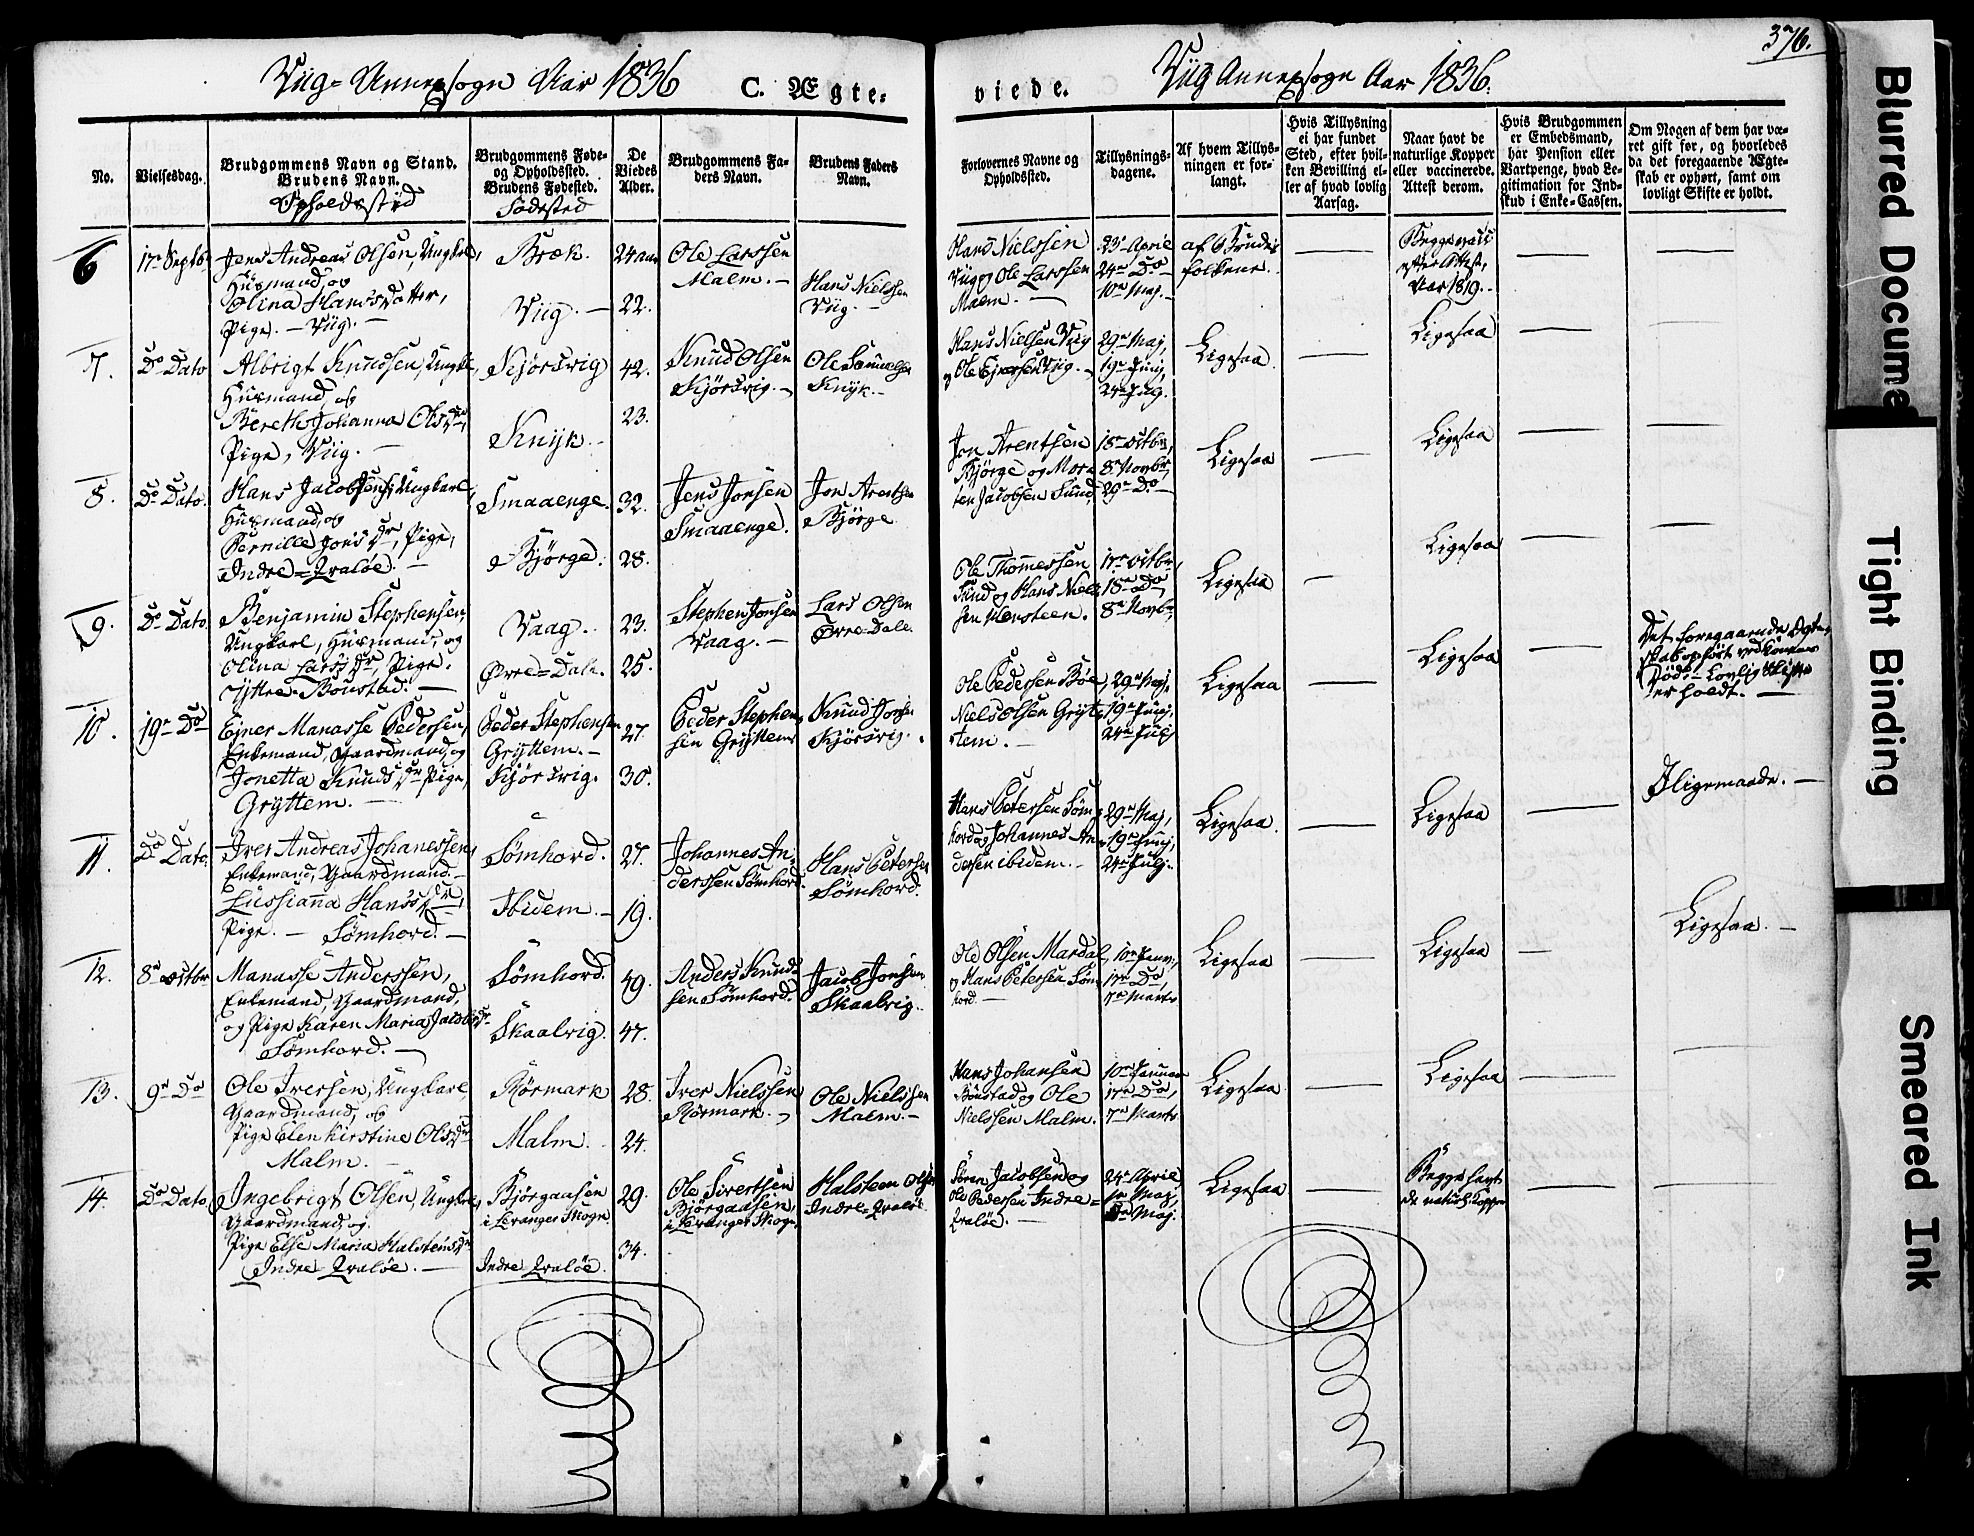 Viig-Annexsogn Aar 1836
C. Ægte-
viede.
Viig Annexsogn Aar 1836.
376.
No.
Vielsesdag.
Brudgommens Navn og Stand.
Brudens Navn.
Opholdssted
Brudgommens Føde-
og Opholdssted.
Brudens Fødested.
Fødested
De
Viedes
Alder.
Brudgommens Fa-
ders Navn.
Brudens Faders
Navn.
Forlovernes Navne og
Opholdssted.
Tillysnings-
dagene.
Af hvem Tillys-
ningen er for-
langt.
Hvis Tillysning
ei har fundet
Sted, efter hvil-
ken Bevilling el-
ler af hvad lovlig
Aarsag.
Naar havt de
naturlige Kopper
eller vaccinerede.
Attest derom.
Hvis Brudgommen
er Embedsmand,
har Pension eller
Vartpenge, hvad Le-
gitimation for Ind-
skud i Enke-Cassen.
Om Nogen af dem har væ-
ret gift før, og hvorledes
da det foregaaende Ægte-
skab er ophørt, samt om
lovligt Skifte er holdt.
6
17de Septb.
Jens Andreas Olsen, Ungkarl,
Husmand, og
Olina Hansdatter,
Pige. - Viig. -
Bræk.
Viig. -
24 aar
22.
Ole Larssen
Malm. -
Hans Nielssen
Viig. -
Hans Nielssen
Viig og Ole Larssen
Malm. -
23de April
24de Do
10de Maj. -
af Brude-
folkene.
Begge vacc.
efter Attest,
Aar 1819.
7.
Do Dato
Albrigt Knudsen, Ungkarl,
Husmand, og
Bereth Johanna Olsdr,
Pige, Viig. -
Kjørsvig
Knyk. -
42.
23.
Knud Olsen
Kjørsvig. -
Ole Samuelsen
Knyk. -
Hans Nielsen Viig
og Ole Ejnersen Viig. -
29de Maj,
19de Junj,
24de Julj.
Ligesaa
Ligesaa
8.
Do Dato.
Hans Jacobsen, Ungkarl,
Husmand, og
Pernille Jonsdr, Pige,
Indre-Qvaløe. -
Smaaenge.
Bjørge.
32.
28.
Jens Jonsen
Smaaenge.
Jon Arentsen
Bjørge
Jon Arentsen
Bjørge og Mor-
ten Jacobsen Sund,
18de Octbr,
8de Novbr,
29de Do
Ligesaa
Ligesaa
9.
Do Dato.
Benjamin Stephensen,
Ungkarl, Husmand, og
Olina Larsdr, Pige.
Yttre-Bønstad. -
Vaag.
Øvre-Dale.
23.
25.
Stephen Jonsen
Vaag. -
Lars Olsen
Øvre-Dale.
Ole Thomessen
Sund og Hans Niel-
sen
17de Octbr,
18de Do
8de Novbr,
Ligesaa
Ligesaa
10.
19de Do
Ejner Manasse Pedersen,
Enkemand, Gaardmand, og
Jonetta Knudsdr, Pige,
Gryttem. -
Peder Stephensen
Gryttem. -
Kjørsvig.
27.
30.
Peder Stephen-
sen Gryttem
Knud Jonsen
Kjørsvig.
Ole Pedersen Bøe,
Niels Olsen Gryt-
tem. -
29de Maj,
19de Junj,
24de Julj
Ligesaa
Ligesaa
Det foregaaende Ægte-
skab ophørt ved Konens
Død. - Lovlig Skifte
er holdt. -
11.
Do Dato.
Iver Andreas Johanessen,
Enkemand, Gaardmand. -
Lussianna Hansdr,
Pige. - Sømhord. -
Sømhord.
Ibidem. -
27.
19.
Johannes An-
derssen Sømhord.
Hans Petersen
Sømhord.
Hans Petersen Søm-
hord og Johannes An-
dersen ibidem. -
29de Maj,
19de Junj,
24de Julj.
Ligesaa.
Ligesaa
Iligemaade. -
12.
8de Octbr
Manasse Anderssen,
Enkemand, Gaardmand,
og Pige Karen Maria Jacobsdr
Sømhord. -
Sømhord.
Skaalvig.
49.
47.
Anders Knud-
sen Sømhord.
Jacob Jonsen
Skaalvig.
Ole Olsen Mardal
og Hans Petersen Søm-
hord. -
10de Janv.,
17de Do,
7de Marts
Ligesaa
Ligesaa
Ligesaa. -
13.
9de Do
Ole Iverssen, Ungkarl,
Gaardmand, og
Pige Elen Kirstine Olsdr
Malm. -
Rørmark
Malm.
28.
24.
Iver Nielssen
Rørmark. -
Ole Nielssen
Malm. -
Hans Johansen
Bønstad og Ole
Nielssen Malm.
10de Januar
17de Do,
7de Marts
Ligesaa
Ligesaa
14.
Do Dato,
Ingebrigt Olsen, Ungkarl,
Gaardmand, og
Pige Else Maria Halstensdr
Indre Qvaløe. -
Bjørgaasen
i Levanger Skogn
Indre Qvaløe.
29.
34.
Ole Sivertsen
Bjørgaasen
i Levanger Skogn.
Halsteen Olsen
Indre-Qvaløe
Søren Jacobsen og
Ole Pedersen Indre-
Qvaløe. -
24de April,
1de Maj,
8de Maj.
Ligesaa
Begge havt
de naturl. Kopper
Blurred Docume
Tight Binding
Smeared Ink